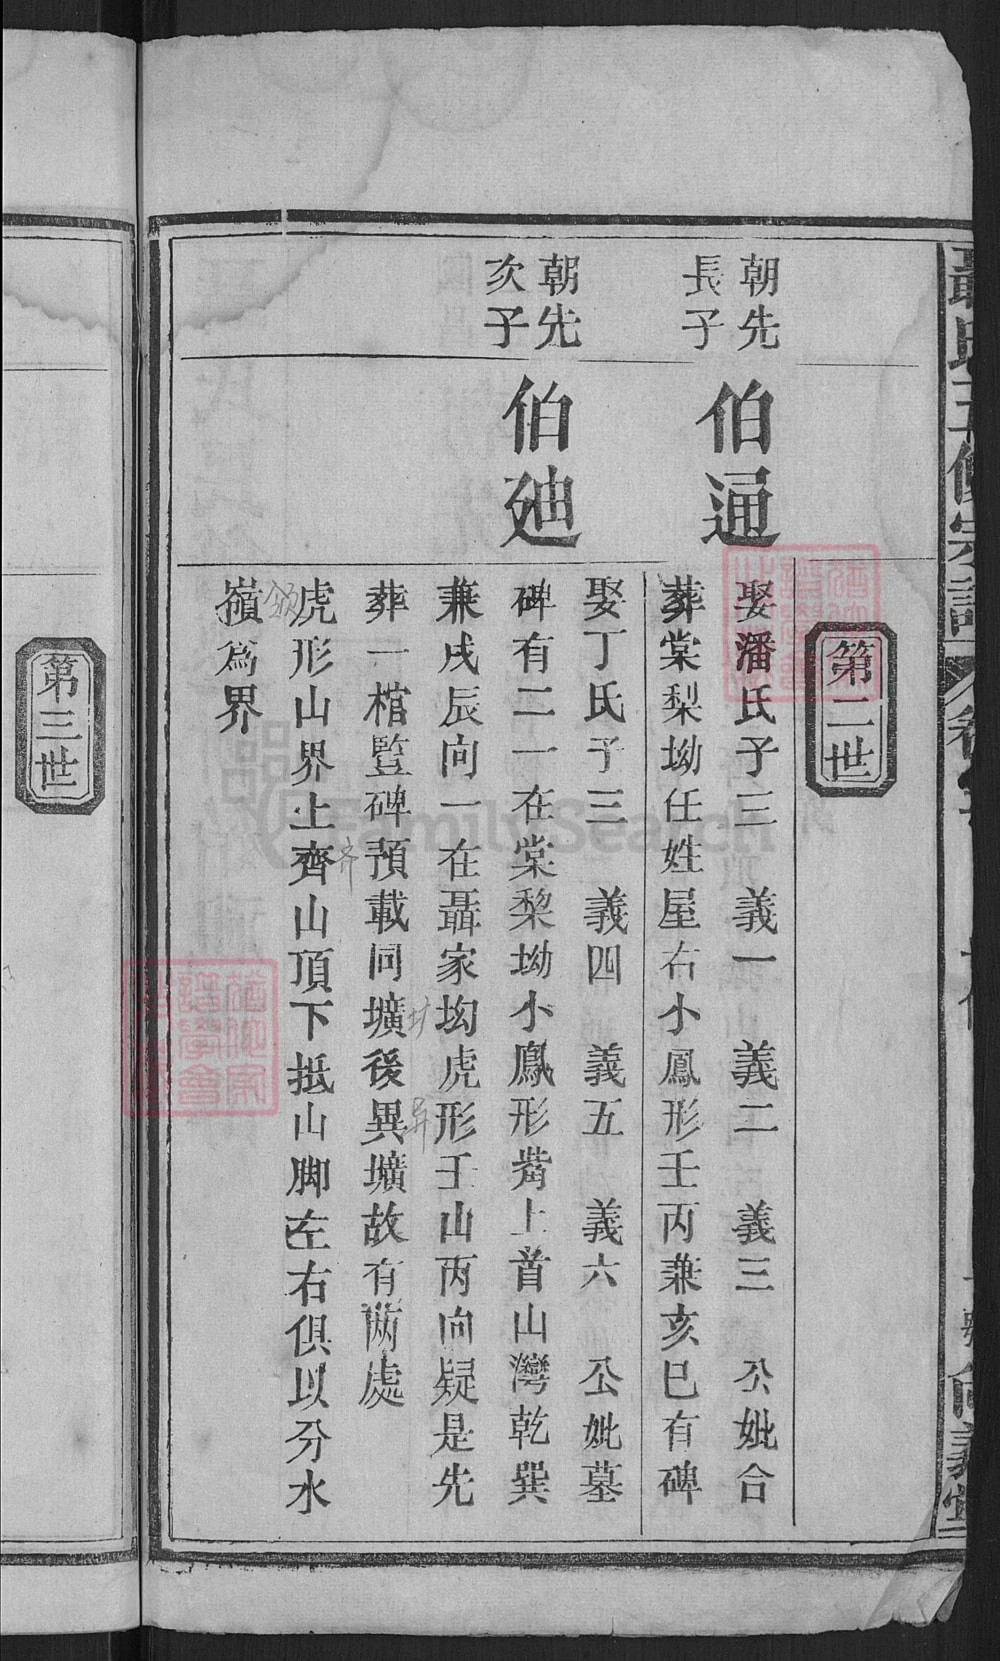 聶氏五修宗譜
第二世
朝先
長子
伯通
娶潘氏子三　義一　義二　義三　公妣合
葬棠梨坳任姓屋右小鳳形壬丙兼亥巳有碑
朝先
次子
伯廸
娶丁氏子三　義四　義五　義六　公妣墓
碑有二一在棠棃坳小鳳形觜上首山灣乾巽
兼戌辰向一在聶家坳虎形壬山丙向疑是先
葬一棺豎碑預載同壙後異壙故有兩處
虎形山界上齊山頂下抵山脚左右俱以分水
嶺為界
第三世
FamilySearch